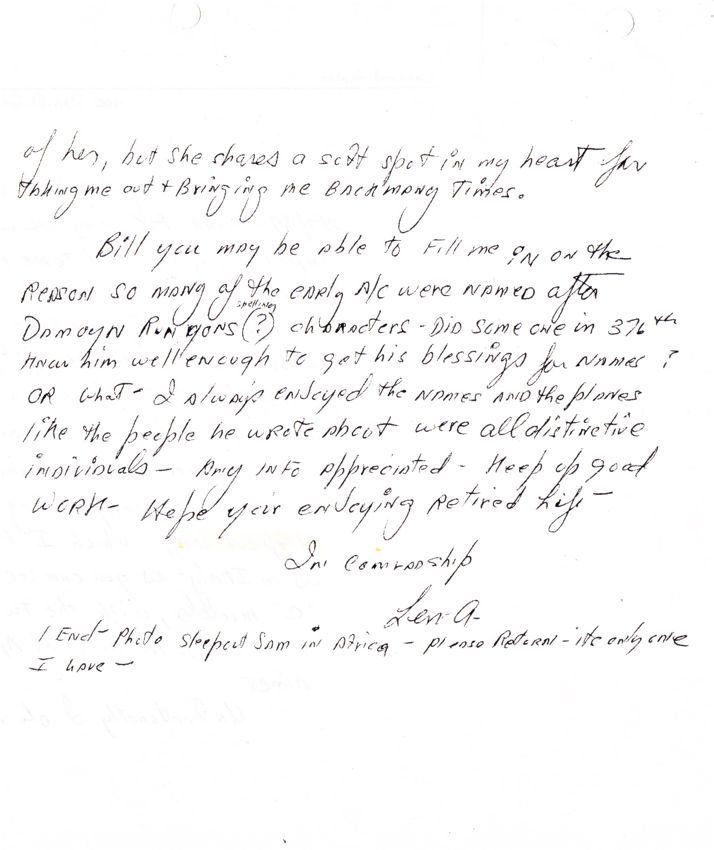 of her, but she shares a soft spot in my heart for
taking me out + Bringing me Back many Times.
Bill you may be able to Fill me in on the
Reason so many of the early A/c were named after
spelling
Damoyn Runyons (?) characters - Did some one in 376th
know him well enough to get his blessings for names?
OR what - I always enjoyed the names and the planes
like the people he wrote about were all distinctive
individuals - Any info appreciated - Keep up good
work - Hope your enjoying retired life -
In comradship
Len A-
1 Encl - Photo Sleepout Sam in Africa - please Return - its only one
I have -